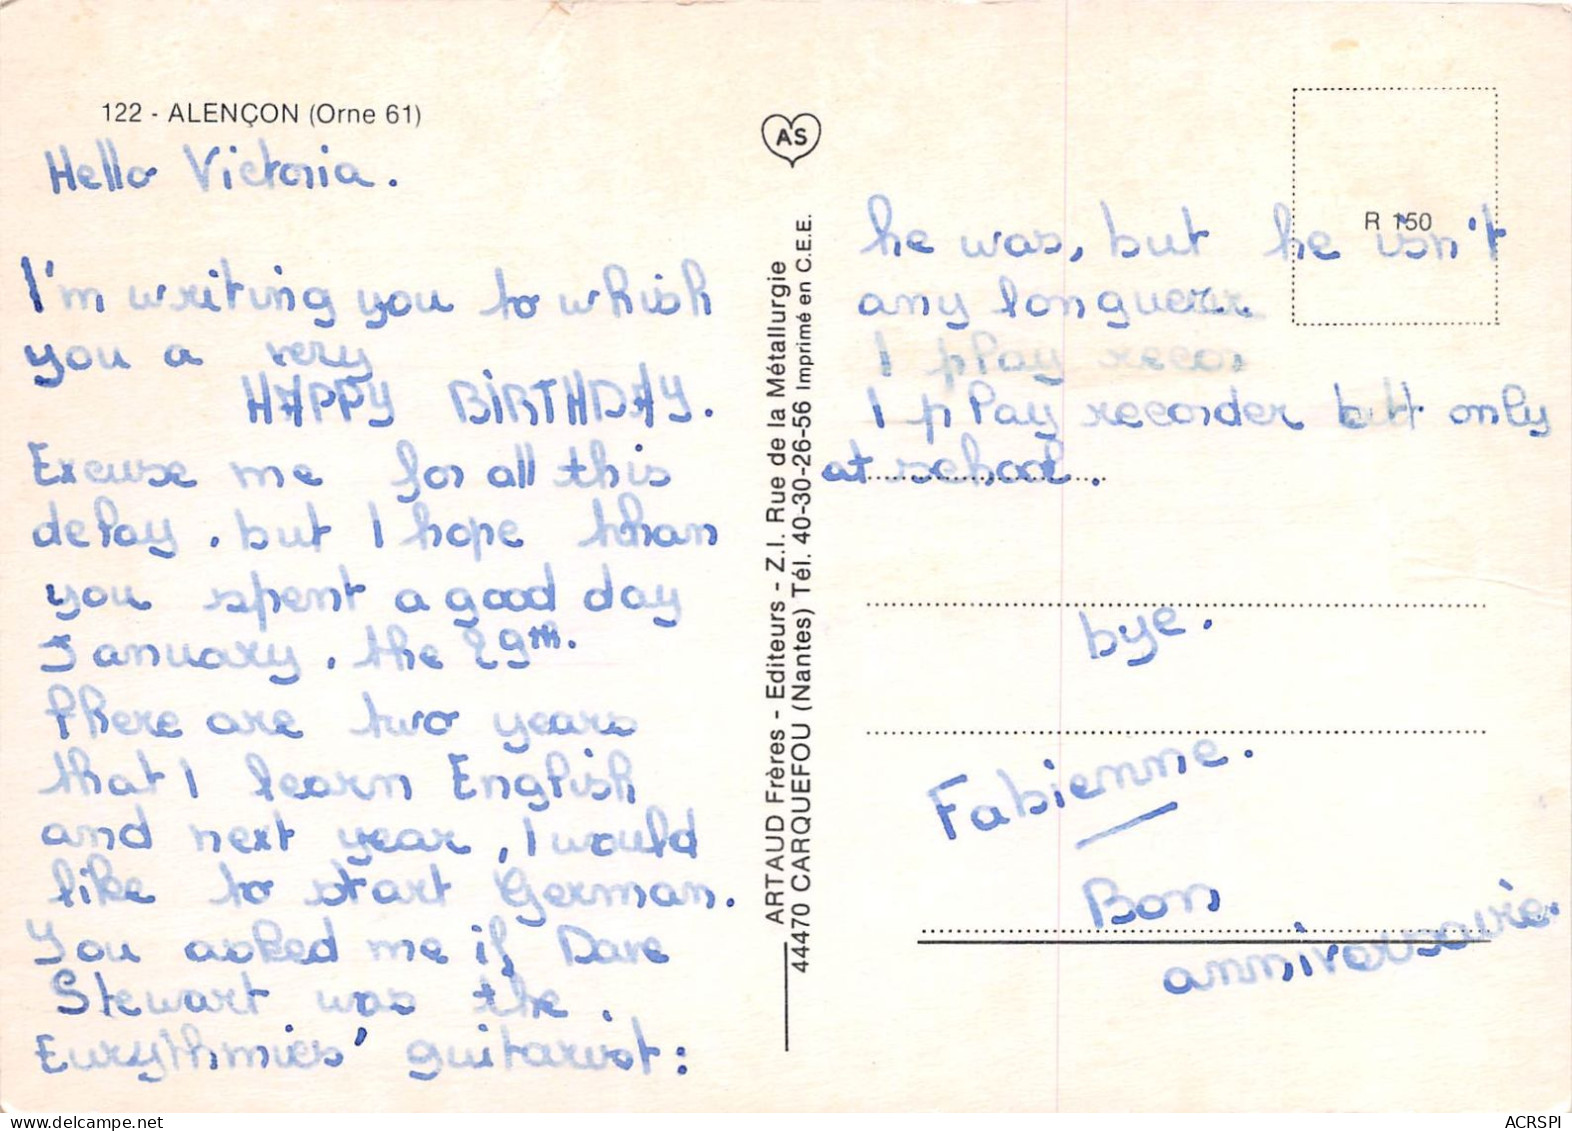 122 - ALENÇON (Orne 61)
Hello Victoria.
I'm writing you to whish
you a very
HAPPY BIRTHDAY.
Excuse me for all this
delay. but I hope than
you spent a good day
January. the 29th.
There are two years
that I learn English
and next year, I would
like to start German.
You asked me if Dave
Stewart was the.
Eurythmics' guitarist:
AS
ARTAUD Frères - Editeurs - Z.I. Rue de la Métallurgie
44470 CARQUEFOU (Nantes) Tél. 40-30-26-56 Imprimé en C.E.E.
R 150
he was, but he isn't
any longuer.
I play recor
I play recorder but only
at school.
bye.
Fabienne.
Bon
anniversaire.
ACRSPI